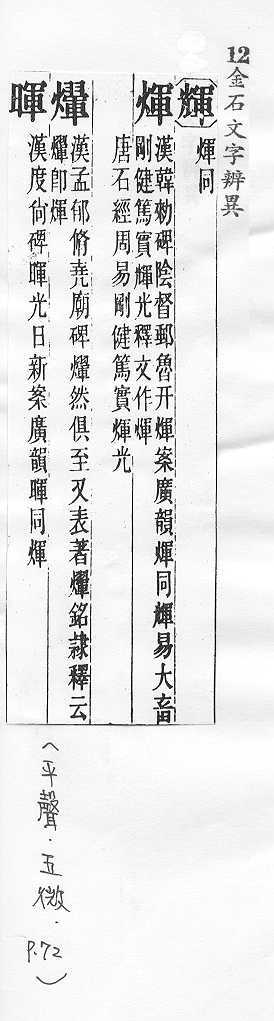 12金石文字辨異
輝
煇同
煇
漢韓勑碑陰督郵魯开煇案廣韻煇同輝易大畜
剛健篤實輝光釋文作煇
唐石經周易剛健篤實煇光
㷉
漢孟郁脩堯廟碑㷉然俱至又表著㷉銘隷釋云
㷉卽煇
暉
漢度尙碑暉光日新案廣韻暉同煇
(平聲.五微.
P.72)